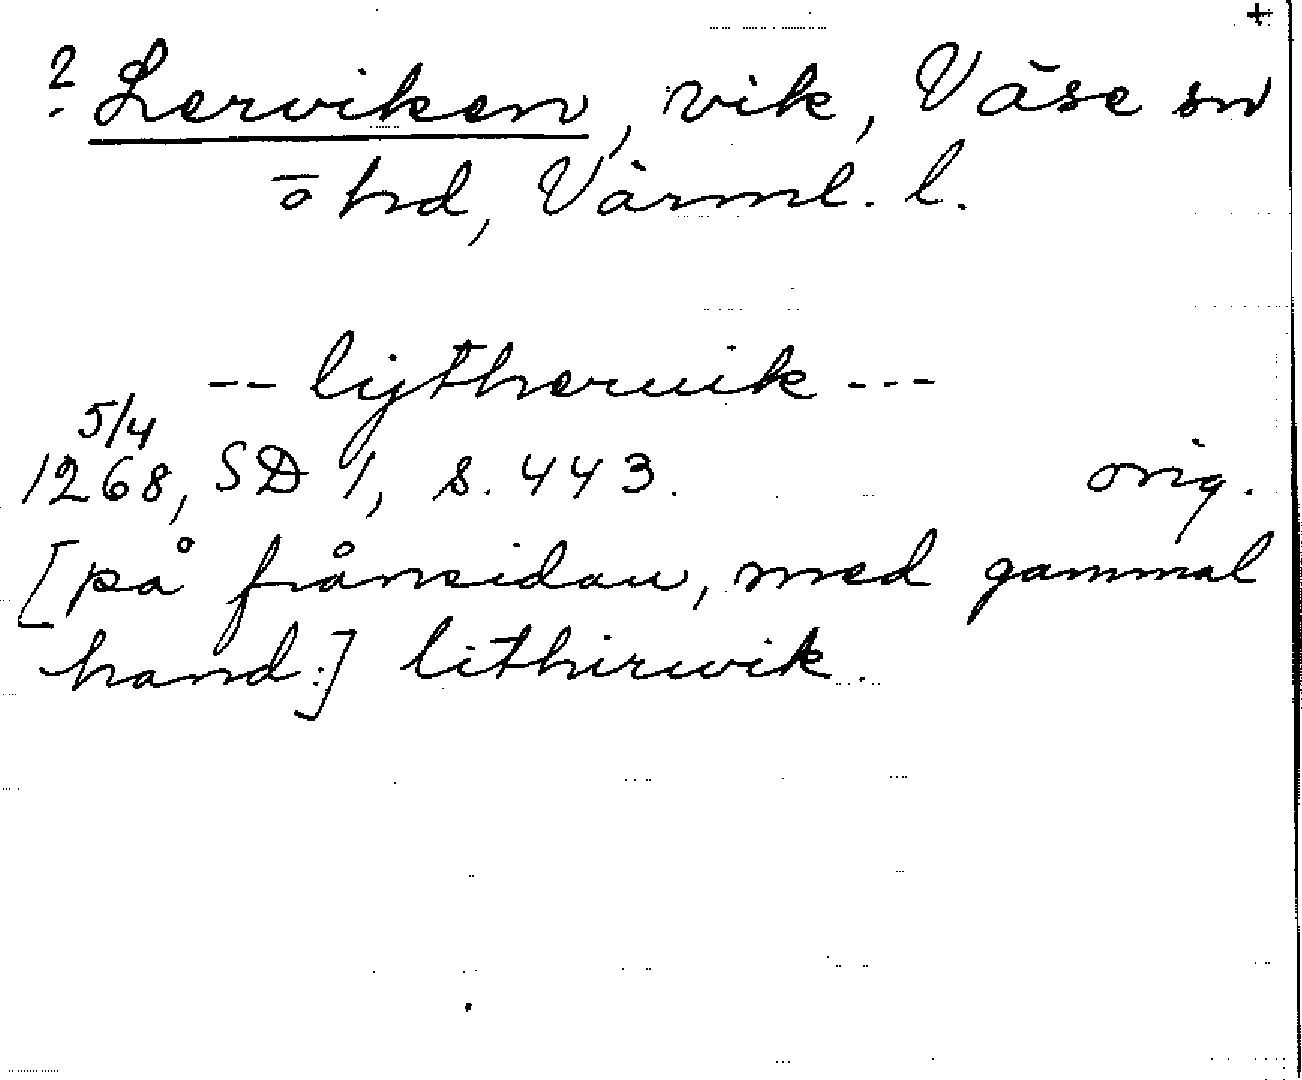 +
? Lerviken, vik, Väse sn
ö hd, Värml. l.
-- lijtheruik ---
5/4
1268, SD 1, s. 443. orig.
[på frånsidan, med gammal
hand:] lithirwik.